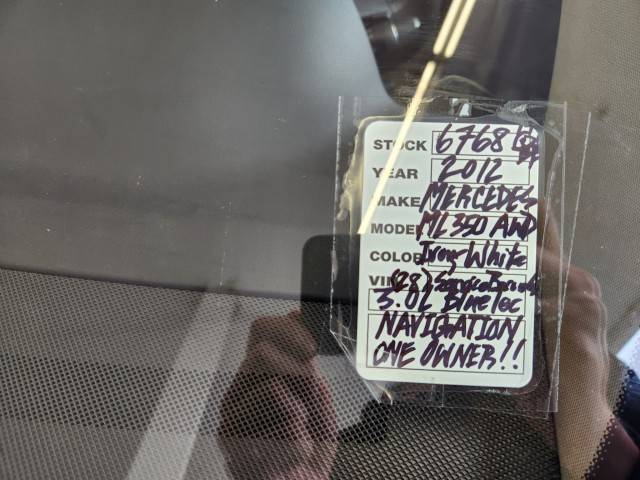 STOCK 6768
YEAR 2012
MAKE MERCEDES
MODEL ML350 AWD
COLOR Irony White
VIN (28) Service Records
3.0L BlueTec
NAVIGATION
ONE OWNER!!